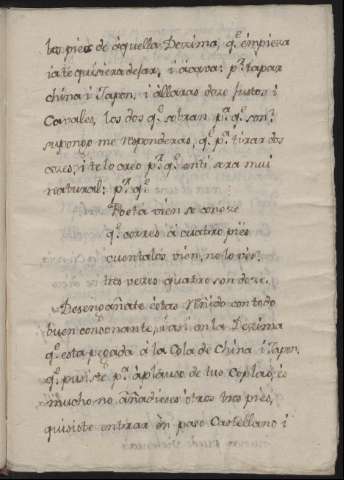 los pies de aquella Dezima, q.e empieza
iate quisiera dejar, i acava: p.a tapar
china i Japon, i allaras doze justos i
Cavales, los dos q.e sobran p.a q.e son?
supongo me responderas, q.e p.a tirar dos
cozes, i te lo creo p.r q.e enti sera mui
natural; p.r q.e
Poeta vien se conoze
q.e corres a cuatro pies
cuentalos vien, no lo ves,
tres vezes quatro son doze.
Desengañate estas reñido con todo
buen consonante, i asi en la Dezima
q.e esta pegada a la Cola de China i Japon,
q.e pusiste p.a aplauso de tus Coplas, es
mucho no añadieses otros tres pies,
quisiste entrar en paso Castellano i